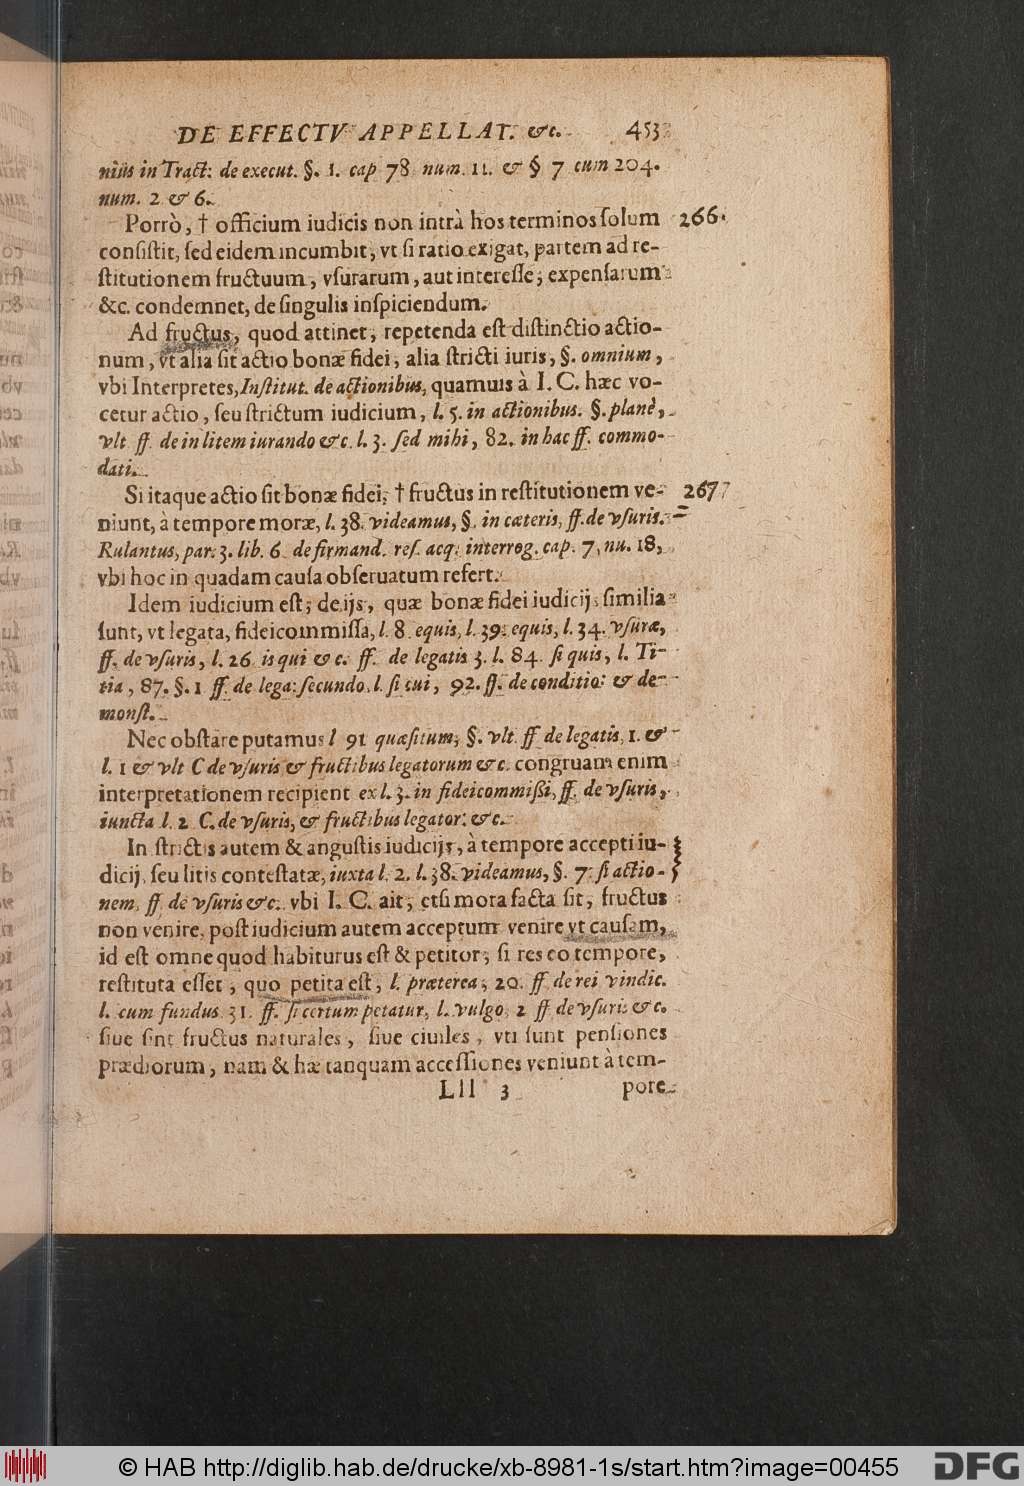 DE EFFECTV APPELLAT. &c. 453
nius in Tract: de execut. §. 1. cap 78 num. 11. & § 7 cum 204.
num. 2 & 6.
Porrò, † officium iudicis non intrà hos terminos ſolum 266.
conſiſtit, ſed eidem incumbit, vt ſi ratio exigat, partem ad re-
ſtitutionem fructuum, vſurarum, aut intereſſe, expenſarum
&c. condemnet, de ſingulis inſpiciendum.
Ad fructus, quod attinet, repetenda eſt diſtinctio actio-
num, vt alia ſit actio bonæ fidei, alia ſtricti iuris, §. omnium,
vbi Interpretes, Inſtitut. de actionibus, quamuis à I. C. hæc vo-
cetur actio, ſeu ſtrictum iudicium, l. 5. in actionibus. §. planè,
vlt ff. de in litem iurando &c. l. 3. ſed mihi, 82. in hac ff. commo-
dati.
Si itaque actio ſit bonæ fidei, † fructus in reſtitutionem ve- 267
niunt, à tempore moræ, l. 38. videamus, §. in cæteris, ff. de vſuris.
Rulantus, par. 3. lib. 6 de firmand. reſ. acq. interrog. cap. 7, nu. 18,
vbi hoc in quadam cauſa obſeruatum refert.
Idem iudicium eſt, de ijs, quæ bonæ fidei iudicij ſimilia
ſunt, vt legata, fideicommiſſa, l. 8 equis, l. 39. equis, l. 34. vſuræ,
ff. de vſuris, l. 26. is qui & c. ff. de legatis 3. l. 84. ſi quis, l. Ti-
tia, 87. §. 1 ff. de lega: ſecundo. l. ſi cui, 92. ff. de conditio: & de-
monſt.
Nec obſtare putamus l 91 quæſitum, §. vlt. ff de legatis, 1. &
l. 1 & vlt C de vſuris & fructibus legatorum &c. congruam enim
interpretationem recipient ex l. 3. in fideicommiſsi, ff. de vſuris,
iuncta l. 2 C. de vſuris, & fructibus legator: &c.
In ſtrictis autem & anguſtis iudicijs, à tempore accepti iu-
dicij, ſeu litis conteſtatæ, iuxta l. 2. l. 38. videamus, §. 7. ſi actio-
nem, ff. de vſuris &c. vbi I. C. ait, etſi mora facta ſit, fructus
non venire, poſt iudicium autem acceptum venire vt cauſam,
id eſt omne quod habiturus eſt & petitor, ſi res eo tempore,
reſtituta eſſet, quo petita eſt, l. præterea, 20. ff de rei vindic.
l. cum fundus 31. ff. ſi certum petatur, l. vulgo, 2 ff de vſuris &c.
ſiue ſint fructus naturales, ſiue ciuiles, vti ſunt penſiones
prædiorum, nam & hæ tanquam acceſſiones veniunt à tem-
Lll 3 pore
© HAB http://diglib.hab.de/drucke/xb-8981-1s/start.htm?image=00455 DFG